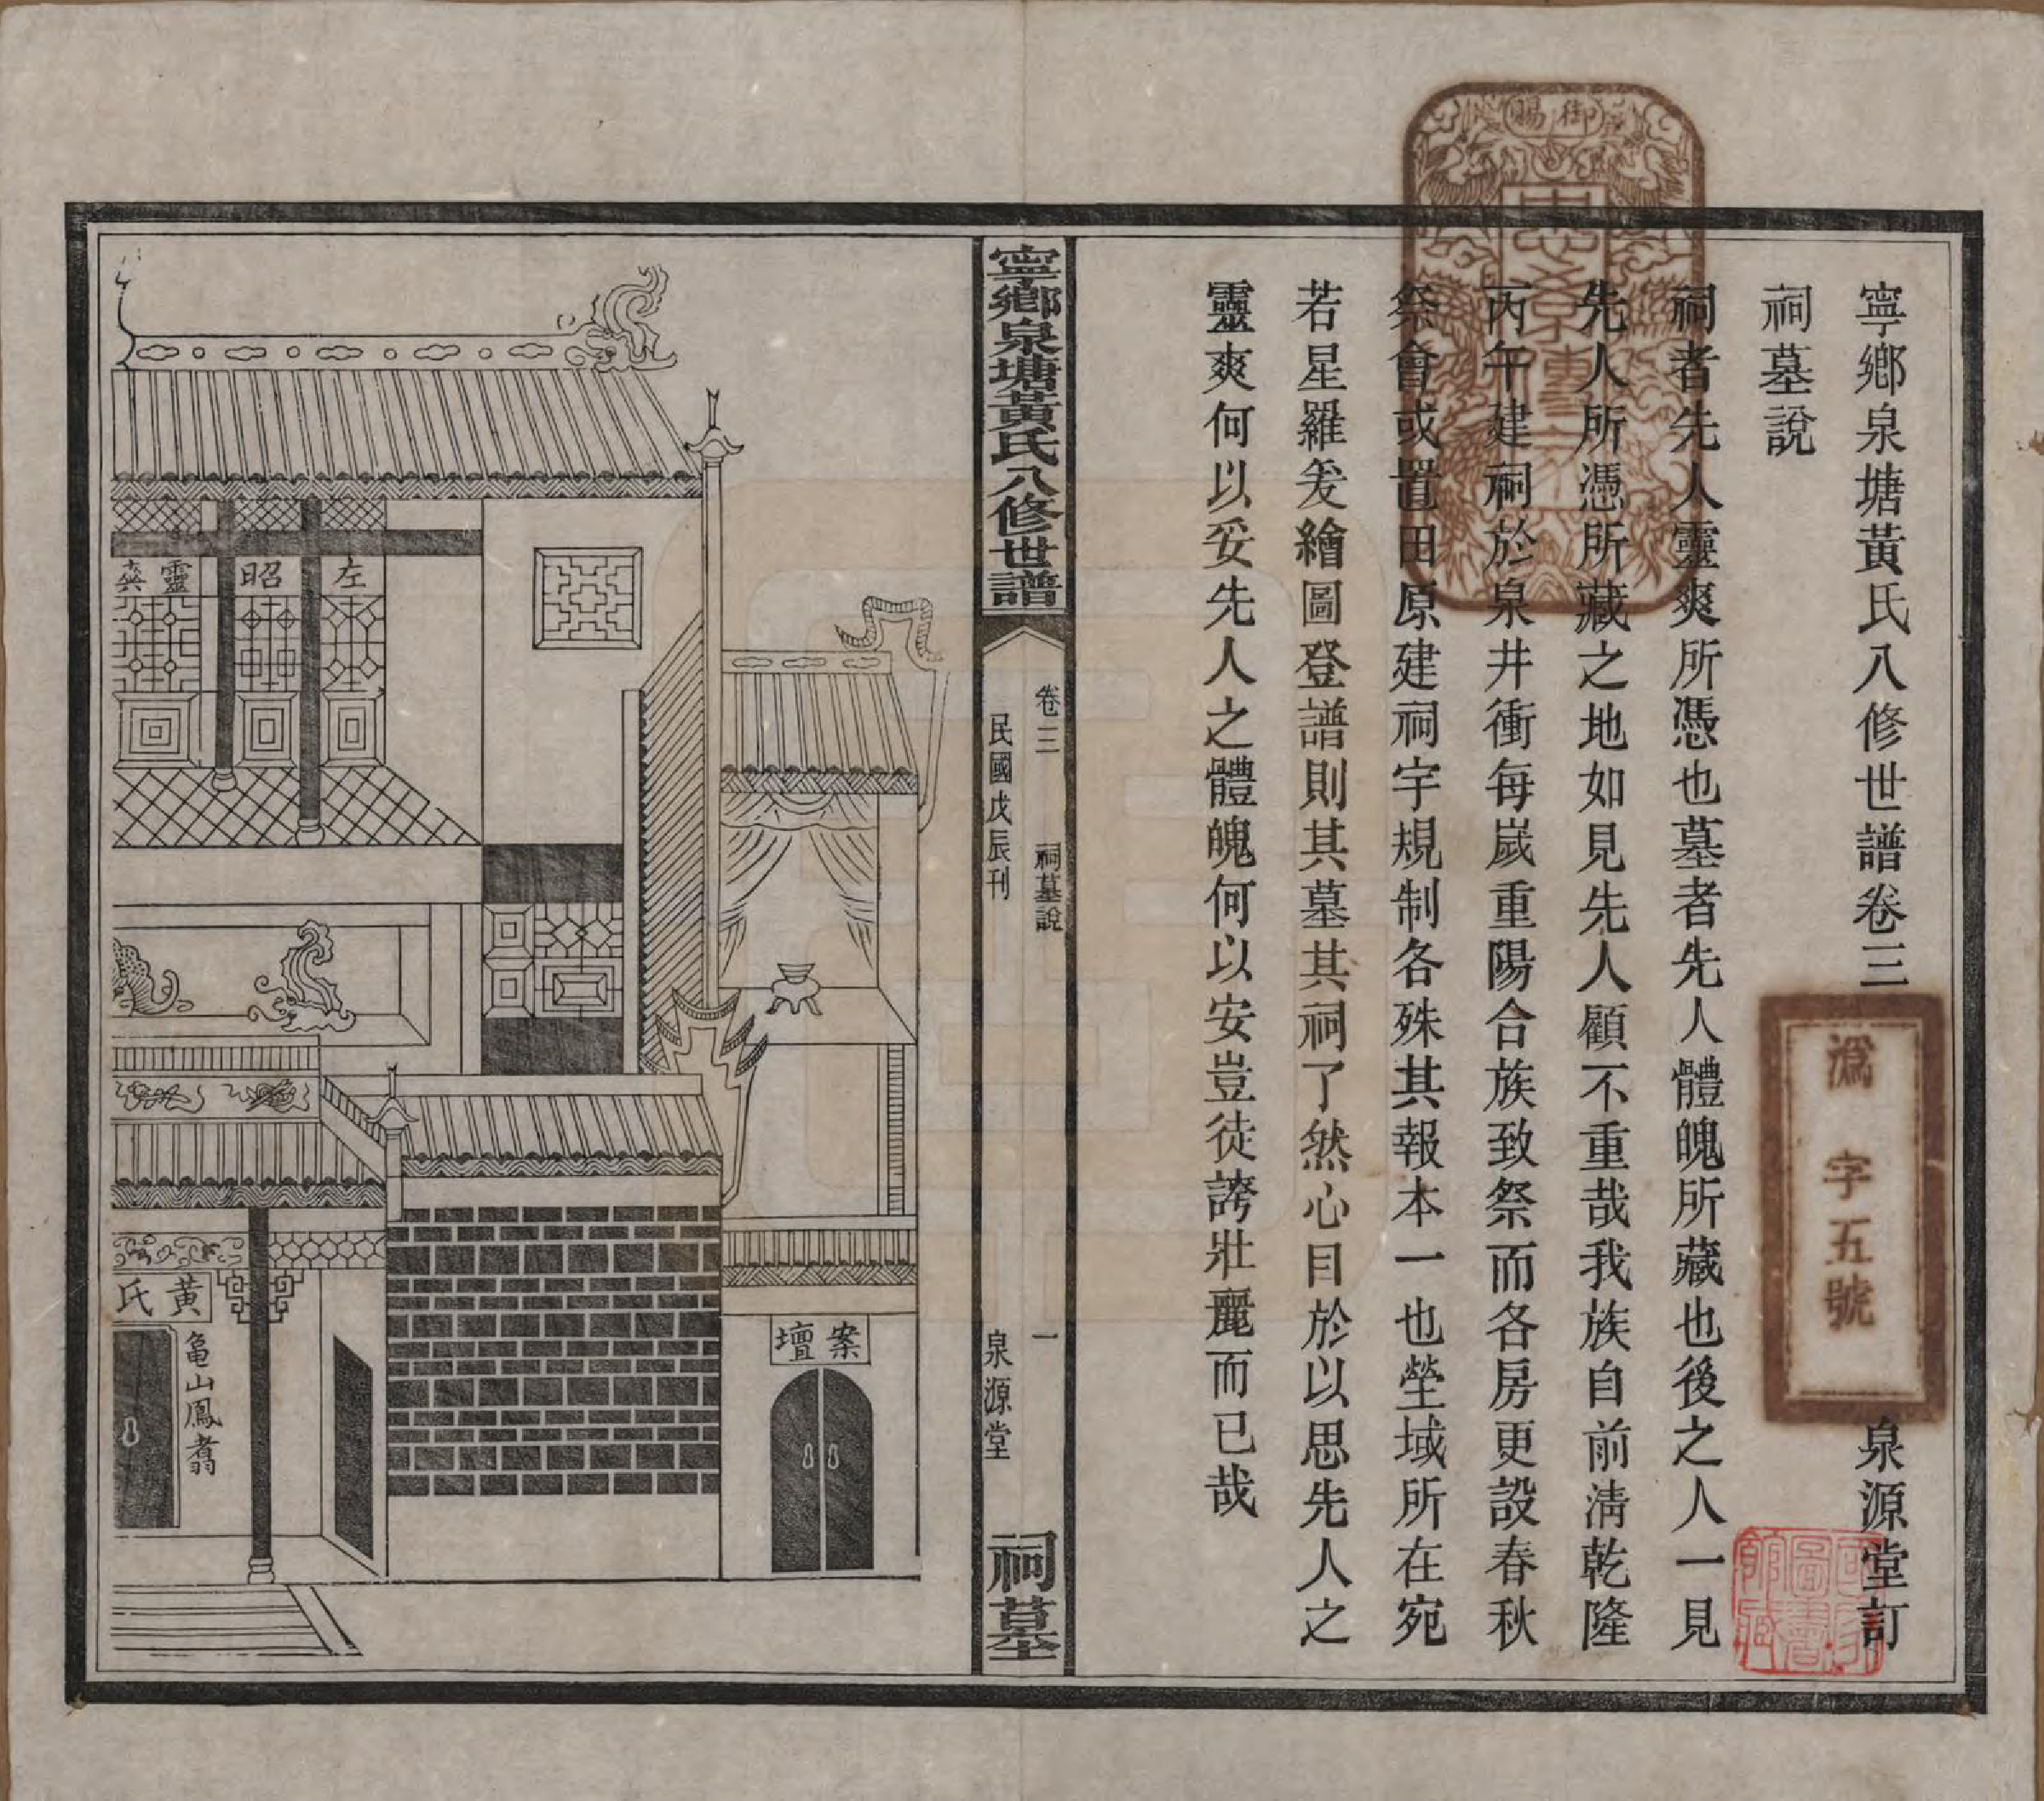 寧鄉泉塘黃氏八修世譜卷三
泉源堂訂
祠墓說
祠者先人靈爽所憑也墓者先人體魄所藏也後之人一見
先人所憑所藏之地如見先人顧不重哉我族自前淸乾隆
丙午建祠於泉井衝每嵗重陽合族致祭而各房更設春秋
祭會或置田原建祠宇規制各殊其報本一也塋域所在宛
若星羅爰繪圖登譜則其墓其祠了然心目於以思先人之
靈爽何以妥先人之體魄何以安豈徒誇壯麗而已哉
御賜
溈字五號
寧鄉泉塘黃氏八修世譜
卷三 祠墓說 一
民國戊辰刊 泉源堂
祠墓
左
昭
靈爽
案壇
黃氏
龜山鳳翥